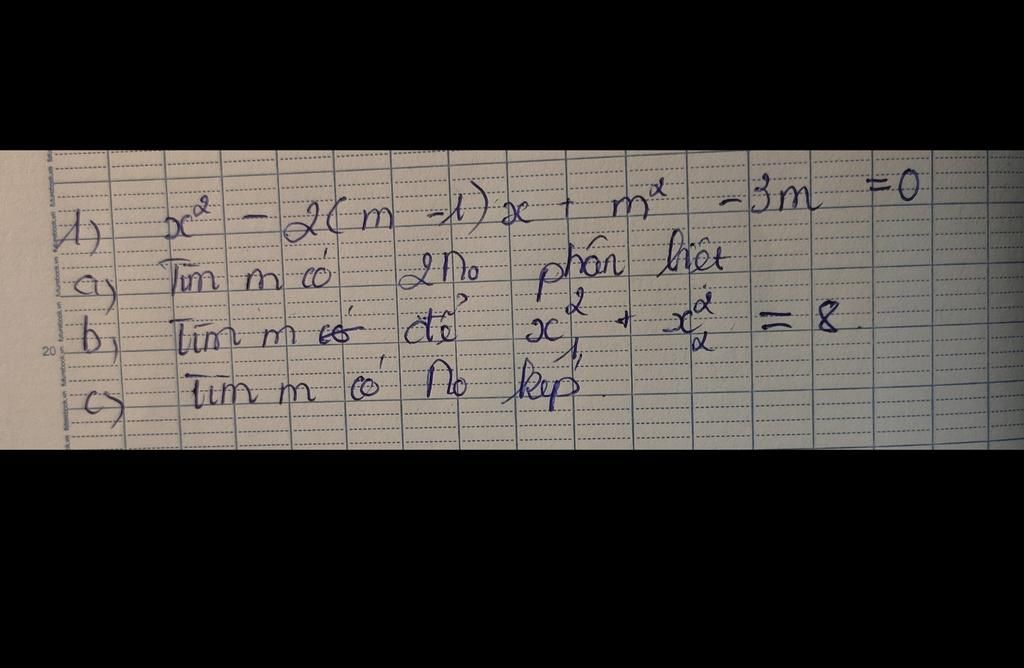 1) x² - 2(m - 1)x + m² - 3m = 0
a) Tìm m có 2 No phân biệt
b, Tìm m có để x₁² + x₂² = 8
20
c) Tìm m có No kép